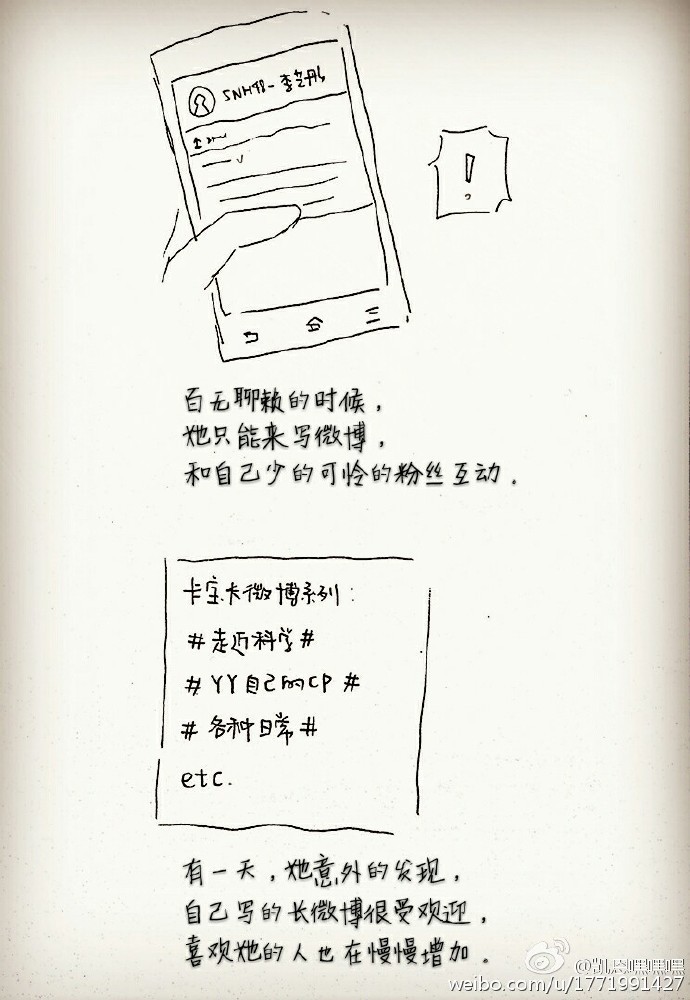 SNH48-李艺彤
!
?
百无聊赖的时候，
她只能来写微博，
和自己少的可怜的粉丝互动．
卡宝卡微博系列：
#走近科学#
#YY自己的CP#
#各种日常#
etc.
有一天，她意外的发现，
自己写的长微博很受欢迎，
喜欢她的人也在慢慢增加．
@凯恩嘿嘿嘿
weibo.com/u/1771991427